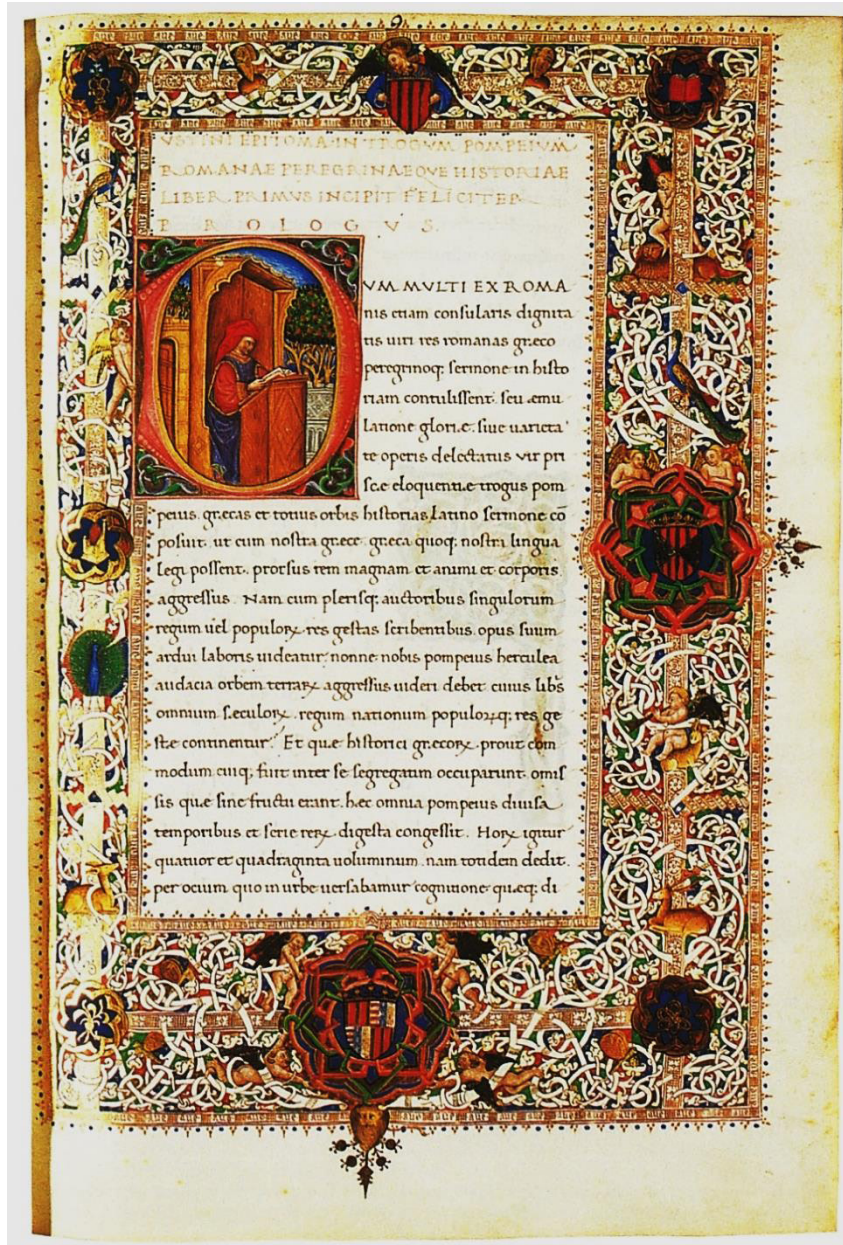 VSTINI EPITOMA·IN·TROGVM POMPEIVM
ROMANAE PEREGRINAEQVE HISTORIAE
LIBER·PRIMVS INCIPIT FELICITER
PROLOGVS.
VM MVLTI EX ROMA
nis etiam consularis dignita
tis uiri res romanas græco
peregrinoq; sermone in histo
riam contulissent. seu æmu
latione gloriæ. siue uarieta
te operis delectatus vir pri
scæ eloquentiæ trogus pom
peius. græcas et totius orbis historias latino sermone cō
posuit. ut cum nostra græce. græca quoq; nostra lingua
legi possent. prorsus rem magnam et animi et corporis
aggressus. Nam cum plerisq; auctoribus singulorum
regum uel populoꝝ res gestas scribentibus. opus suum
ardui laboris uideatur. nonne nobis pompeius herculea
audacia orbem terraꝝ aggressus uideri debet cuius libs
omnium sæculoꝝ. regum nationum populoꝝq; res ge
stæ continentur. Et quæ historici græcoꝝ prout com
modum cuiq; fuit inter se segregatim occuparunt. omis
sis quæ sine fructu erant. hæc omnia pompeius diuisa
temporibus et serie reꝝ digesta congessit. Hoꝝ igitur
quatuor et quadraginta uoluminum. nam totidem dedit.
per ocium quo in urbe uersabamur cognitione quæq; di